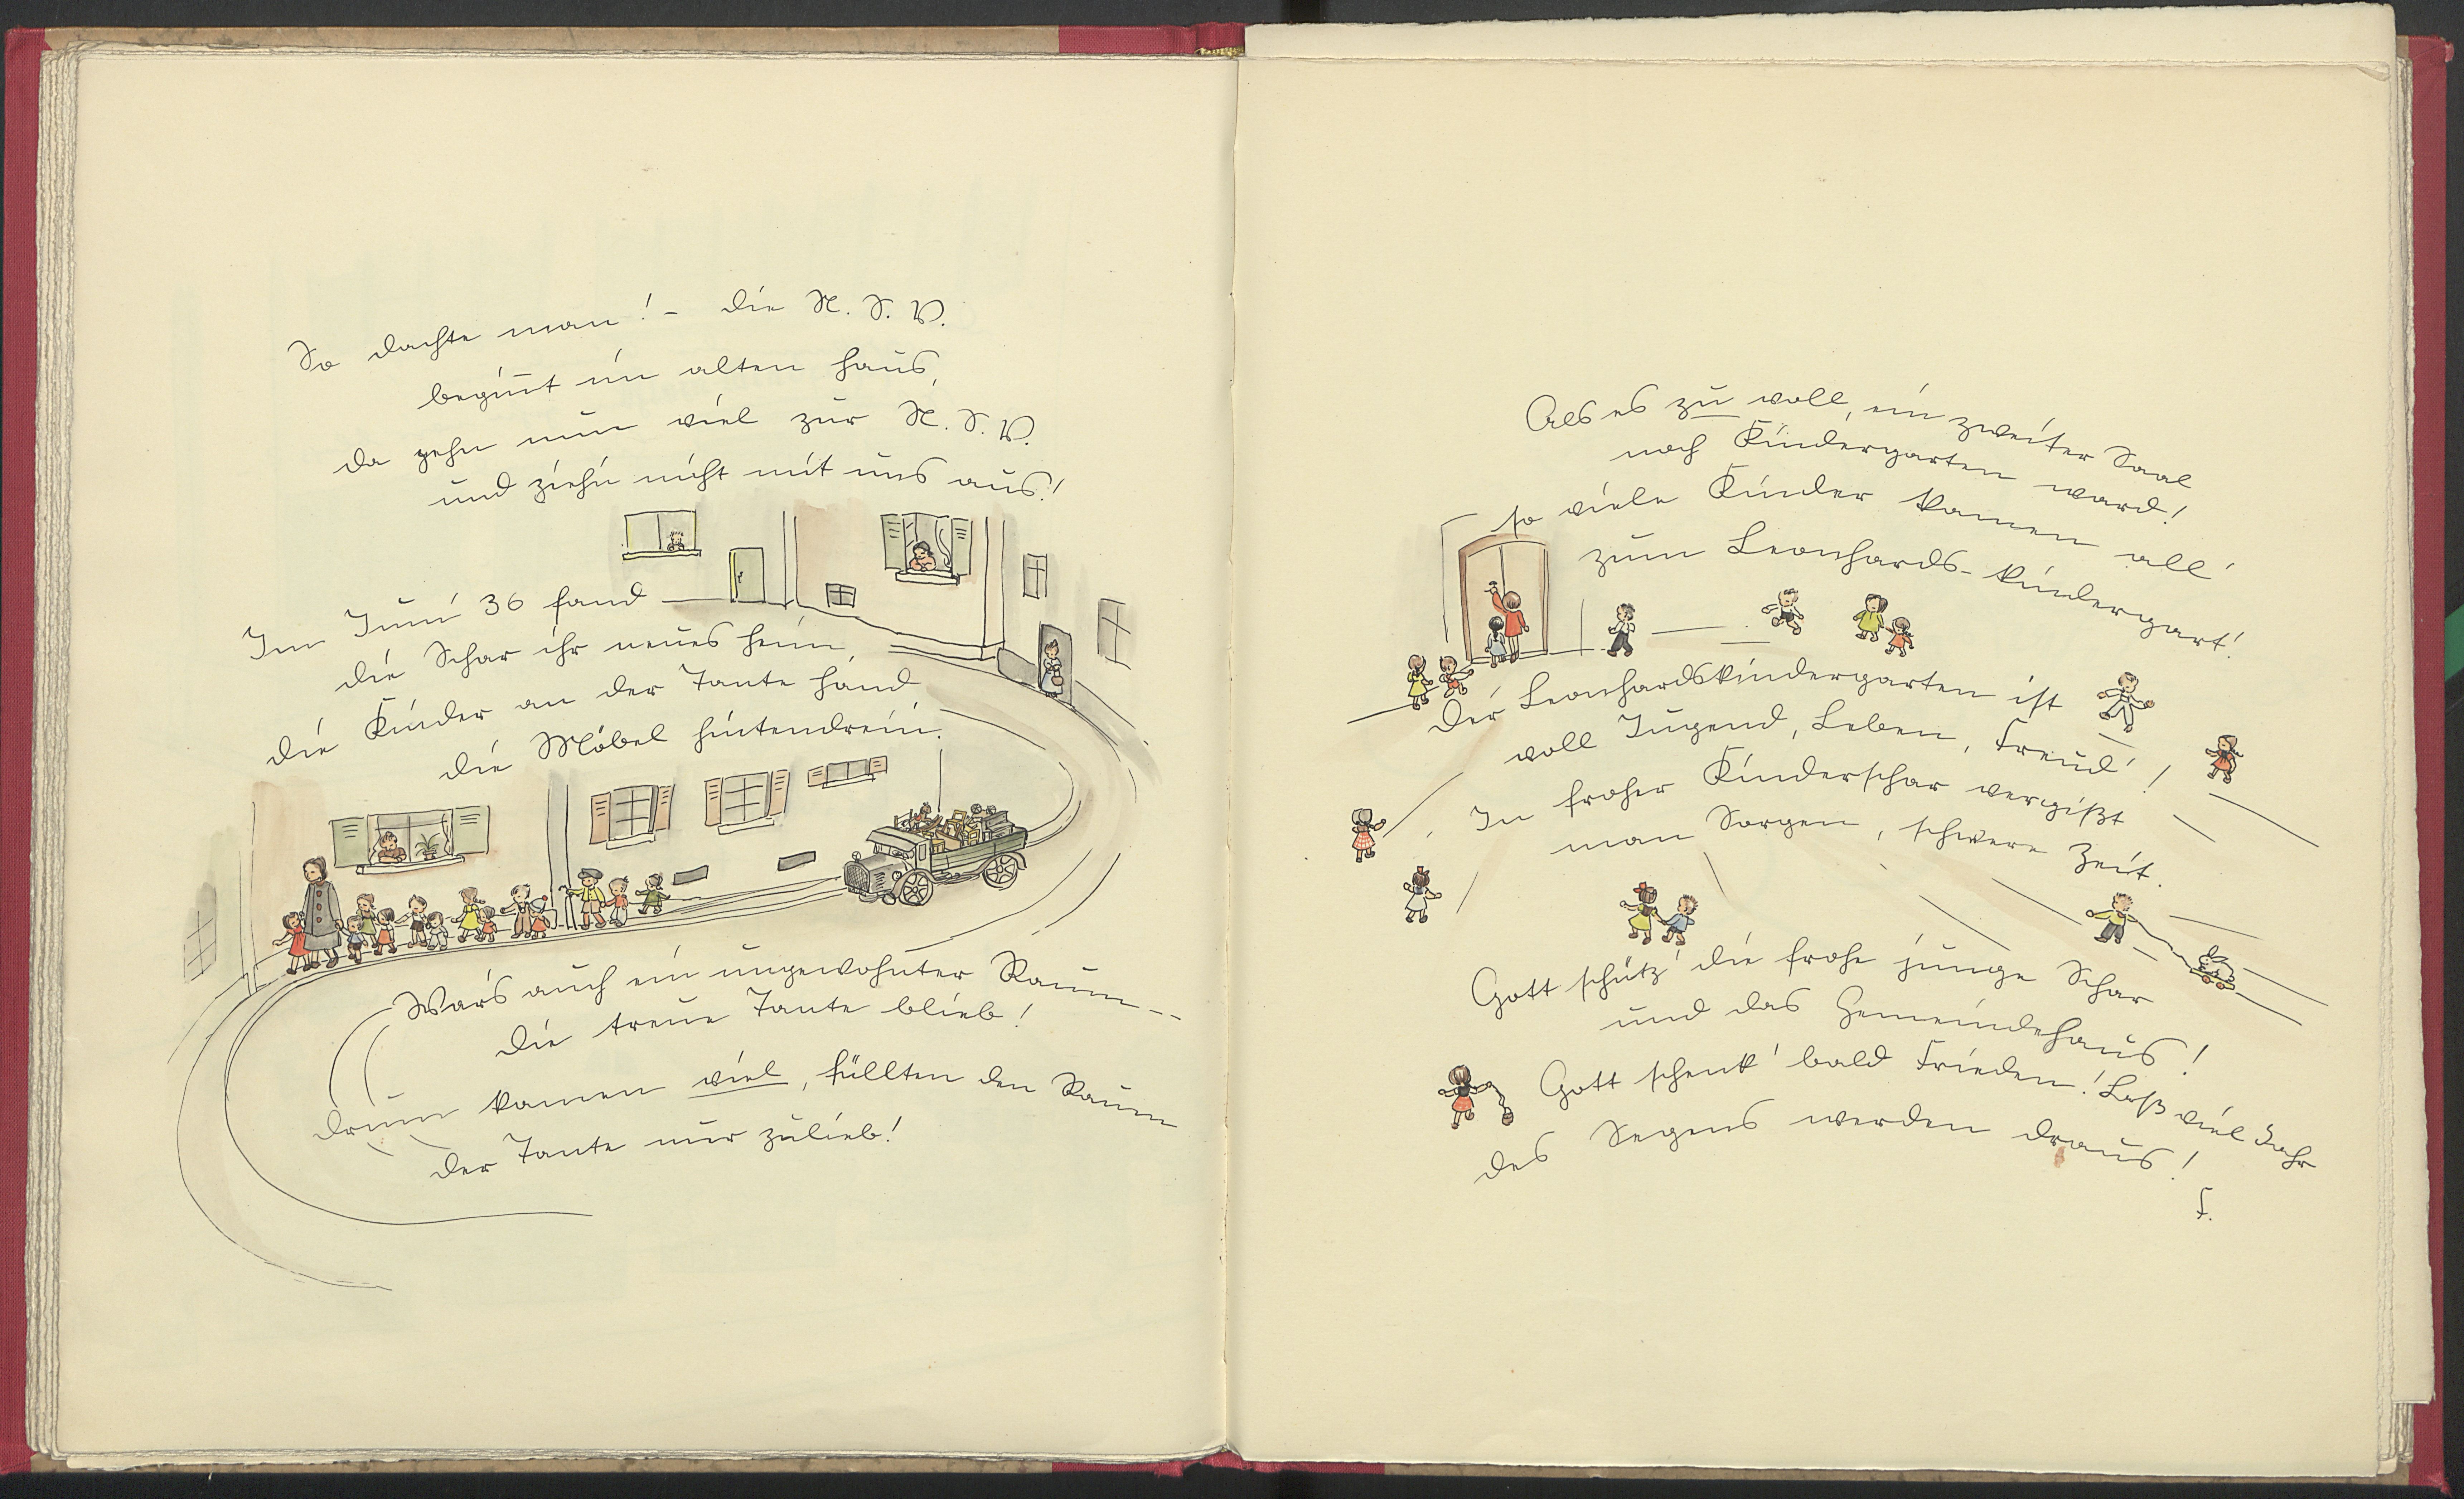 So dachte man! – die N. S. V.
begin̄t im alten Haus,
da gehn nun viel zur N. S. V.
und ziehn nicht mit uns aus!
Im Juni 36 fand
die Schar ihr neues Heim,
die Kinder an der Tante Hand
die Möbel hintendrein.
War's auch ein ungewohnter Raum --
die treue Tante blieb!
drum kamen viel, füllten den Raum
der Tante nur zulieb!
Als es zu voll, ein zweiter Saal
noch Kindergarten ward!
so viele Kinder kamen all'
zum Leonhards-kindergart!
Der Leonhardskindergarten ist
voll Jugend, Leben, Freud'!
In froher Kinderschar vergißt
man Sorgen, schwere Zeit.
Gott schütz' die frohe junge Schar
und das Gemeindehaus!
Gott schenk' bald Frieden! Laß viel Jahr
des Segens werden draus!
F.